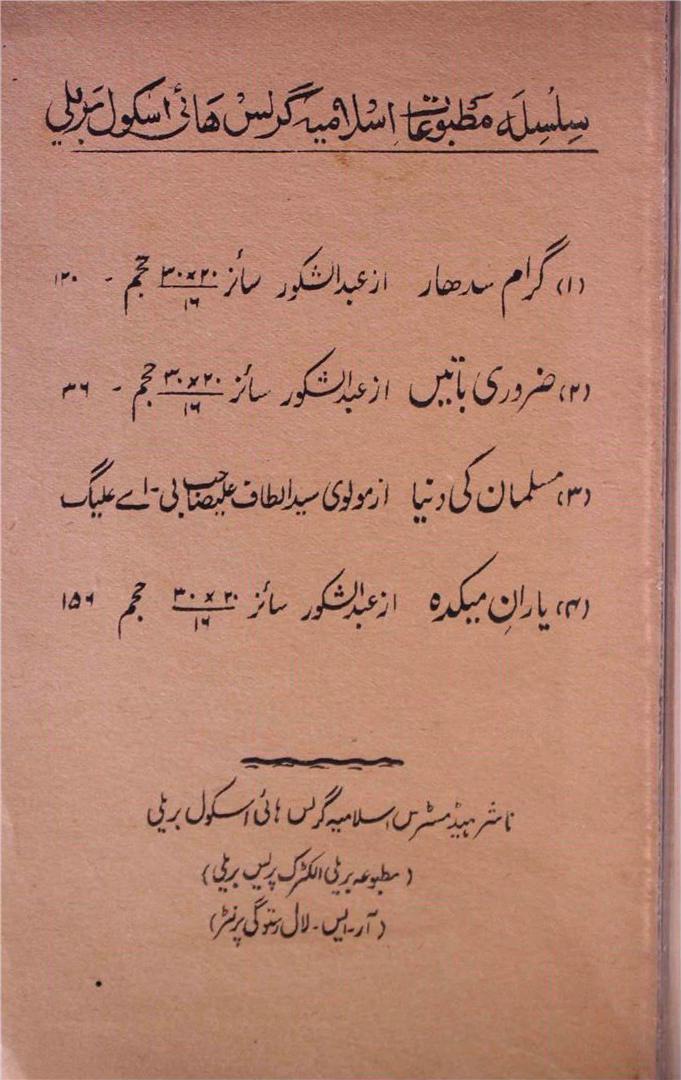 سلسلہ مطبوعات اسلامیہ گرلس ھائی اسکول بریلی
(۱) گرام سدھار از عبدالشکور سائز ۲۰×۳۰/۱۶ حجم - ۱۲۰
(۲) ضروری باتیں از عبدالشکور سائز ۲۰×۳۰/۱۶ حجم - ۳۶
(۳) مسلمان کی دنیا از مولوی سید الطاف علیصاحب بی - اے علیگ
(۴) یارانِ میکدہ از عبدالشکور سائز ۲۰×۳۰/۱۶ حجم ۱۵۶
ناشر ہیڈ مسٹرس اسلامیہ گرلس ہائی اسکول بریلی
(مطبوعہ بریلی الکٹرک پریس بریلی)
(آر - ایس - لال رستوگی پرنٹر)